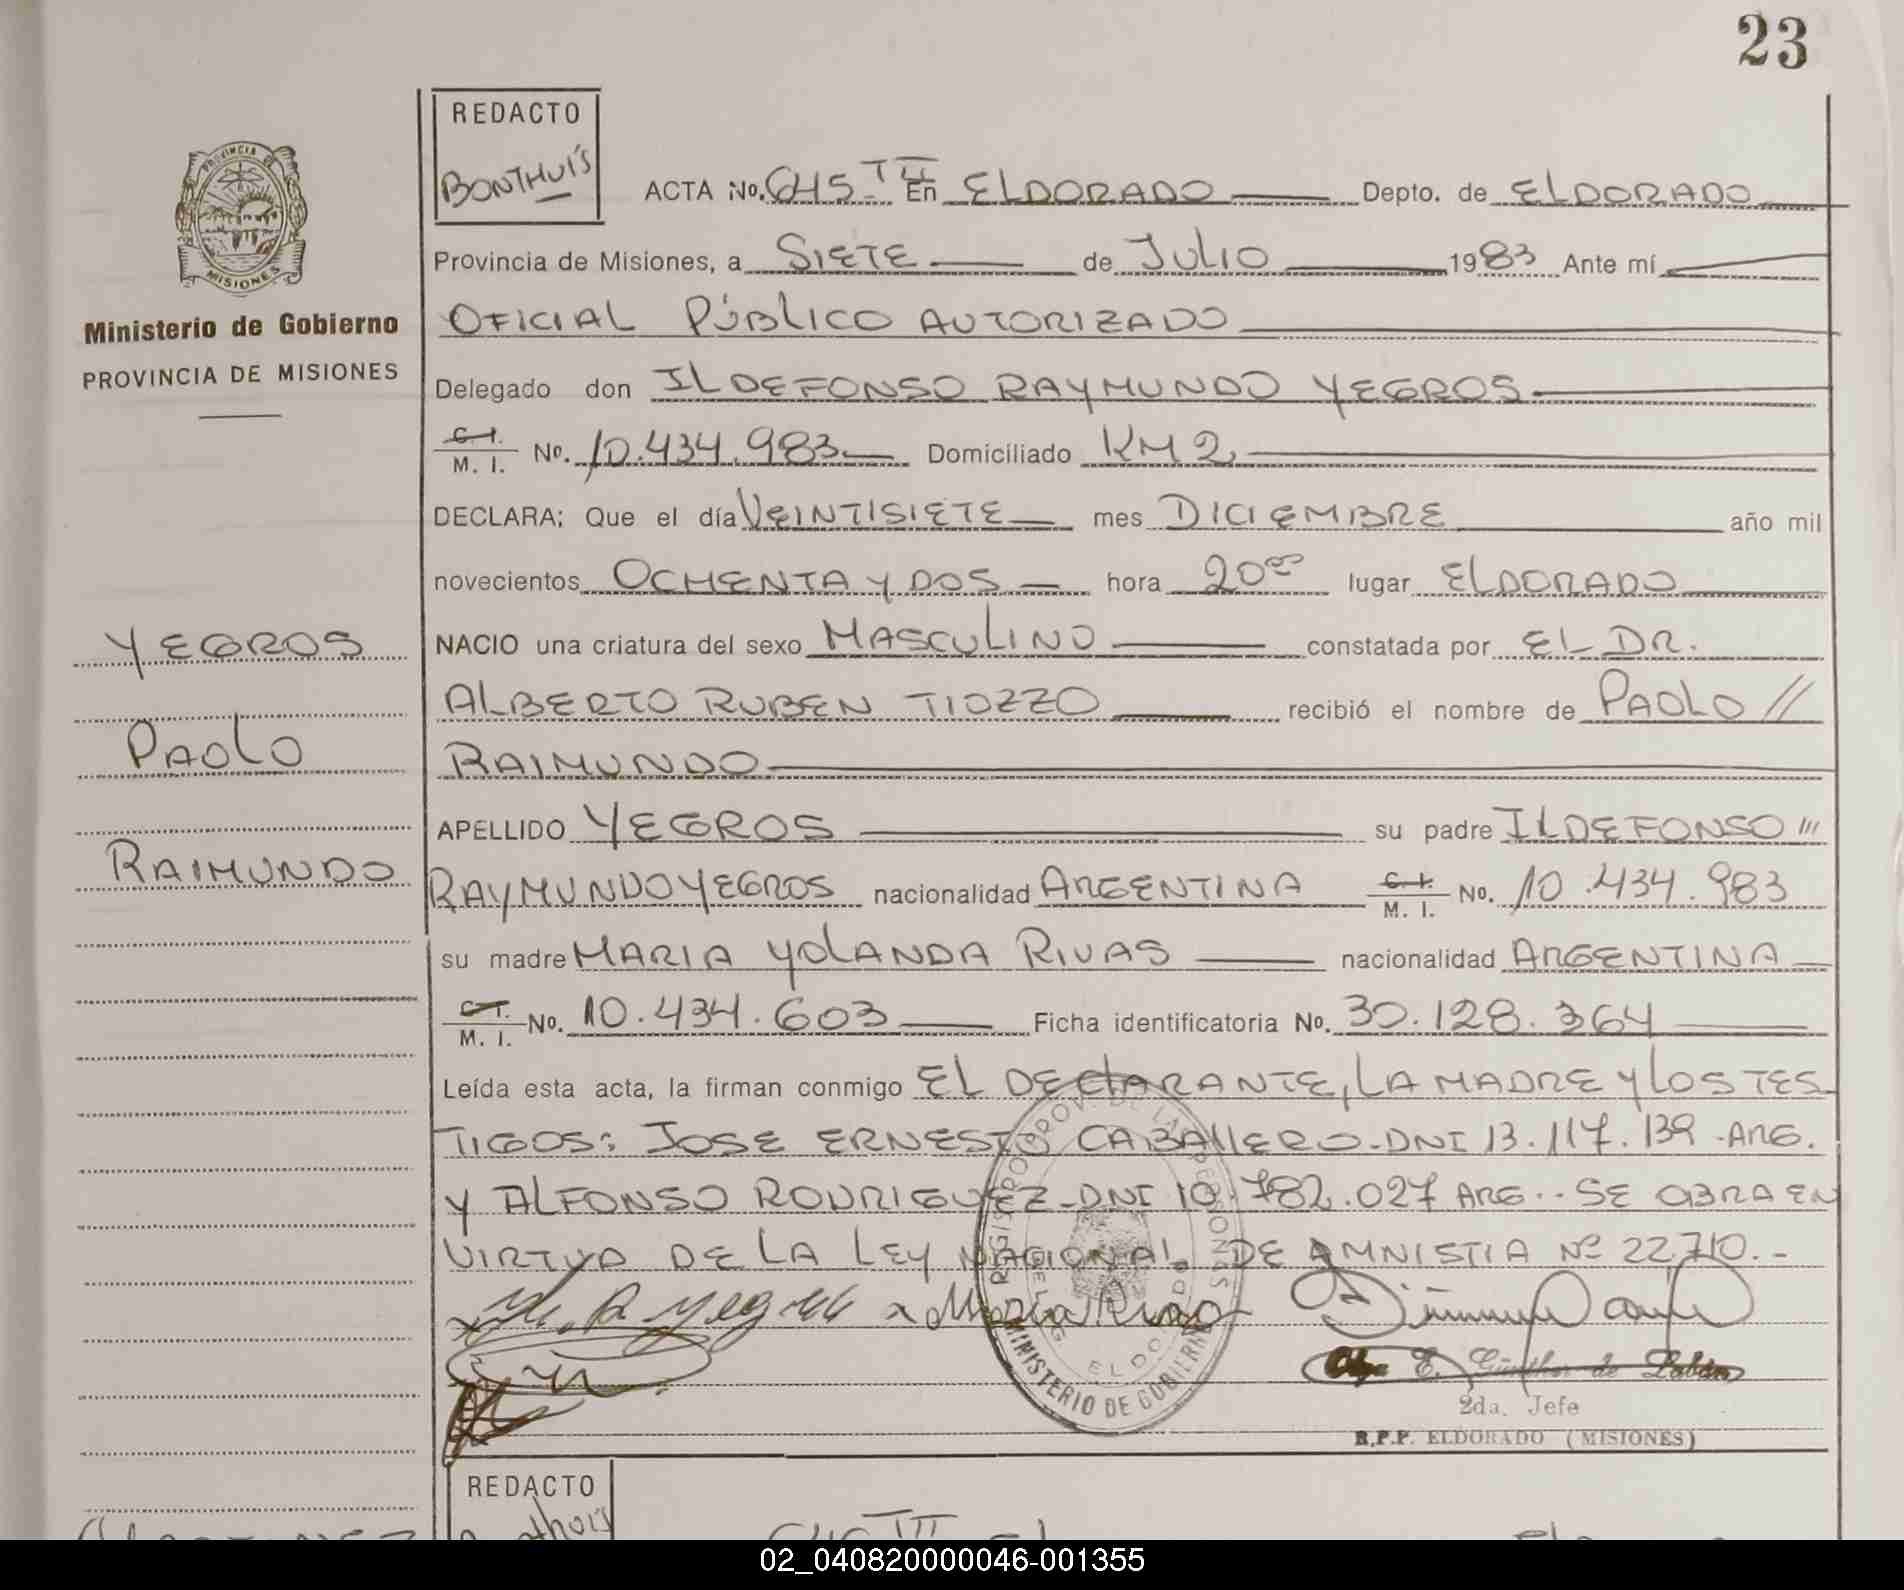 23
REDACTO
BONTHUIS
ACTA No. 645 - T III En ELDORADO Depto. de ELDORADO
Provincia de Misiones, a SIETE de JULIO 1983 Ante mí
OFICIAL PÚBLICO AUTORIZADO
Delegado don ILDEFONSO RAYMUNDO YEGROS
C. I. M. I. No. 10.434.983 Domiciliado KM 2
DECLARA: Que el día VEINTISIETE mes DICIEMBRE año mil
novecientos OCHENTA Y DOS hora 20 00 lugar ELDORADO
NACIO una criatura del sexo MASCULINO constatada por EL DR.
ALBERTO RUBEN TIOZZO recibió el nombre de PAOLO //
RAIMUNDO
APELLIDO YEGROS su padre ILDEFONSO ///
RAYMUNDO YEGROS nacionalidad ARGENTINA C. I. M. I. No. 10.434.983
su madre MARIA YOLANDA RIVAS nacionalidad ARGENTINA
C. I. M. I. No. 10.434.603 Ficha identificatoria No. 30.128.364
Leída esta acta, la firman conmigo EL DECLARANTE, LA MADRE Y LOS TES-
TIGOS: JOSE ERNESTO CABALLERO - DNI 13.117.139 - ARG.
Y ALFONSO RODRIGUEZ - DNI 10.782.027 ARG.. SE OBRA EN
VIRTUD DE LA LEY NACIONAL DE AMNISTIA Nº 22.710.-
Olga E. Günther de Labán
2da. Jefe
R.P.P. ELDORADO (MISIONES)
REGISTRO PROV. DE LAS PERSONAS
DELEG. ELDORADO
MINISTERIO DE GOBIERNO
PROVINCIA DE
MISIONES
Ministerio de Gobierno
PROVINCIA DE MISIONES
YEGROS
PAOLO
RAIMUNDO
REDACTO
02_040820000046-001355